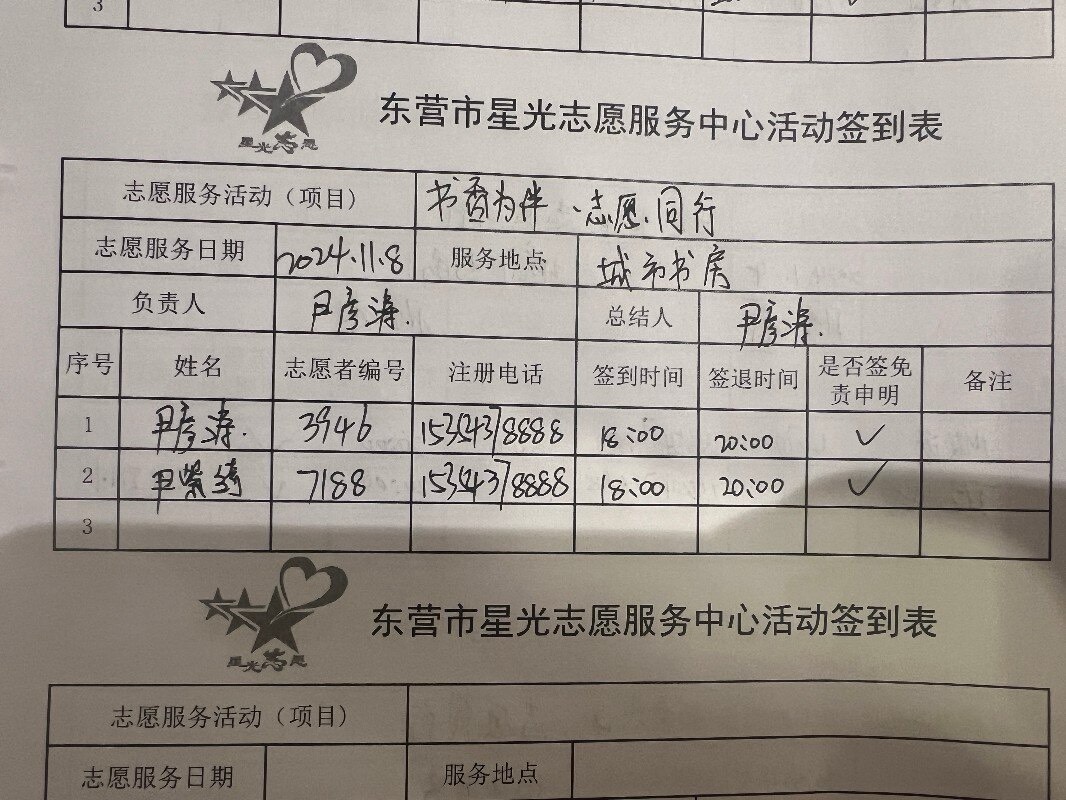 3
星光志愿
东营市星光志愿服务中心活动签到表
志愿服务活动（项目） 书香为伴、志愿同行
志愿服务日期 2024.11.8 服务地点 城市书房
负责人 尹彦涛 总结人 尹彦涛
序号 姓名 志愿者编号 注册电话 签到时间 签退时间 是否签免责申明 备注
1 尹彦涛 3946 18:00 20:00 ✓
2 尹紫绮 7188 18:00 20:00 ✓
3
星光志愿
东营市星光志愿服务中心活动签到表
志愿服务活动（项目）
志愿服务日期 服务地点